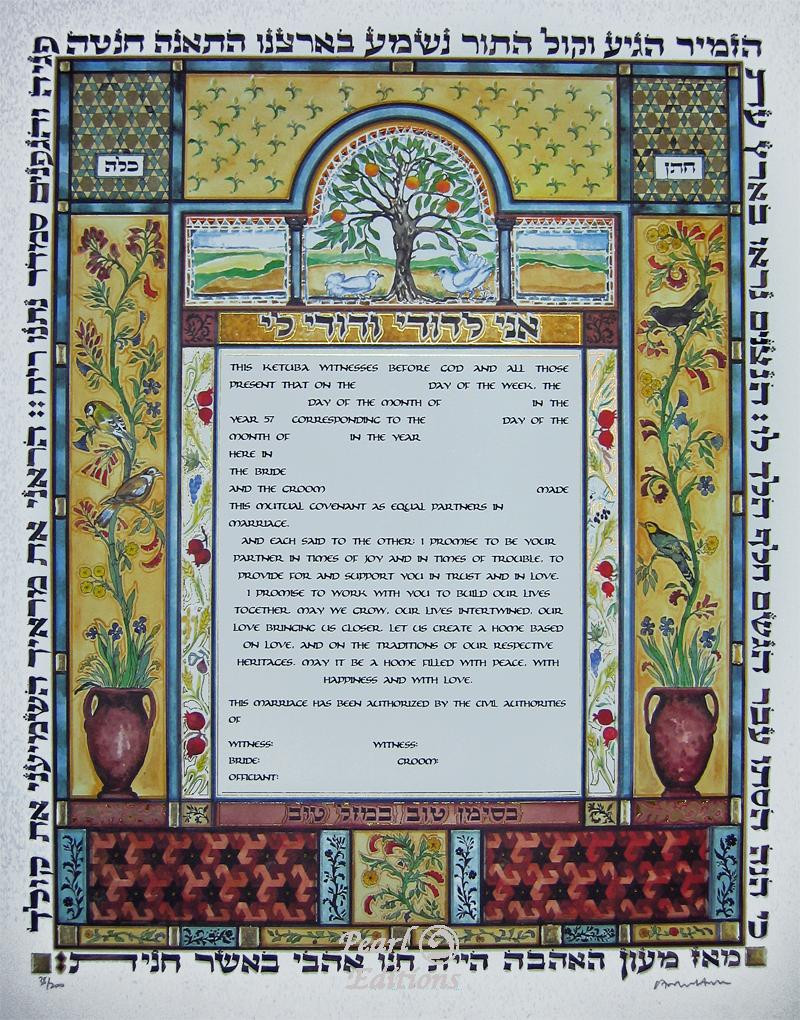 כי הנה הסתו עבר הגשם חלף הלך לו :: הנצנים נראו בארץ עת
הזמיר הגיע וקול התור נשמע בארצנו התאנה חנטה
פגיה והגפנים סמדר נתנו ריח :: הראני את מראיך השמיעני את קולך
חתן
כלה
אני לדודי ודודי לי
THIS KETUBA WITNESSES BEFORE GOD AND ALL THOSE
PRESENT THAT ON THE DAY OF THE WEEK, THE
DAY OF THE MONTH OF IN THE
YEAR 57 CORRESPONDING TO THE DAY OF THE
MONTH OF IN THE YEAR
HERE IN
THE BRIDE
AND THE GROOM MADE
THIS MUTUAL COVENANT AS EQUAL PARTNERS IN
MARRIAGE.
AND EACH SAID TO THE OTHER: I PROMISE TO BE YOUR
PARTNER IN TIMES OF JOY AND IN TIMES OF TROUBLE, TO
PROVIDE FOR AND SUPPORT YOU IN TRUST AND IN LOVE.
I PROMISE TO WORK WITH YOU TO BUILD OUR LIVES
TOGETHER. MAY WE GROW, OUR LIVES INTERTWINED, OUR
LOVE BRINGING US CLOSER. LET US CREATE A HOME BASED
ON LOVE, AND ON THE TRADITIONS OF OUR RESPECTIVE
HERITAGES. MAY IT BE A HOME FILLED WITH PEACE, WITH
HAPPINESS AND WITH LOVE.
THIS MARRIAGE HAS BEEN AUTHORIZED BY THE CIVIL AUTHORITIES
OF
WITNESS: WITNESS:
BRIDE: GROOM:
OFFICIANT:
בסימן טוב במזל טוב
מאז מעון האהבה היית חנו אהבי באשר חנית:
Pearl
Editions